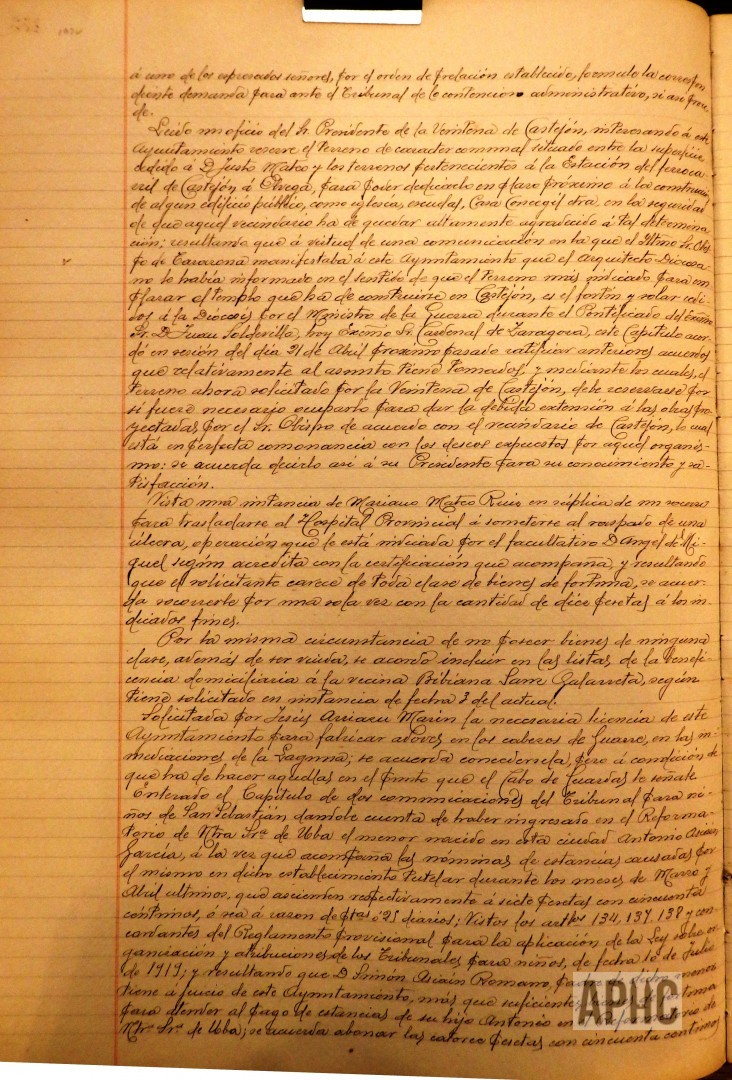 á uno de los expresados señores, por el orden de prelación establecido, formule la correspon
diente demanda para ante el Tribunal de lo contencioso administrativo, si así proce
de.
Leido un oficio del Sr. Presidente de la Veintena de Castejón, interesando á este
Ayuntamiento reserve el terreno de caracter comunal situado entre la superficie
cedida á D. Justo Mateo y los terrenos pertenecientes á la Estación del ferroca
rril de Castejón á Olvega, para poder dedicarlo en plazo próximo á la construcción
de algun edificio público, como iglesia, escuelas, Casa Concegil etra, en la seguridad
de que aquel vecindario ha de quedar altamente agradecido á tal determina
ción; resultando que á virtud de una comunicación en la que el Iltmo Sr. Obis
po de Tarazona manifestaba á este Ayuntamiento que el Arquitecto Diocesa
no le había informado en el sentido de que el terreno más indicado para em
plazar el templo que ha de construirse en Castejón, es el fortín y solar cedi
dos á la Diócesis por el Ministro de la Guerra durante el Pontificado del Excmo
Sr. D. Juan Soldevilla, hoy Excmo Sr. Cardenal de Zaragoza, este Capitulo acor
dó en sesión del dia 21 de Abril proximo pasado ratificar anteriores acuerdos
que relativamente al asunto tiene tomados, y mediante los cuales, el
terreno ahora solicitado por la Veintena de Castejón, debe reservarse por
si fuere necesario ocuparlo para dar la debida extensión á las obras pro
yectadas por el Sr. Obispo de acuerdo con el vecindario de Castejón, lo cual
está en perfecta consonancia con los deseos expuestos por aquel organis-
mo: se acuerda decirlo así á su Presidente para su conocimiento y sa-
tisfacción.
Vista una instancia de Mariano Mateo Ruiz en súplica de un socorro
para trasladarse al Hospital Provincial á someterse al raspado de una
úlcera, operación que le está indicada por el facultativo D. Angel de Mi-
guel segun acredita con la certificación que acompaña, y resultando
que el solicitante carece de toda clase de bienes de fortuna, se acuer-
da socorrerle por una sola vez con la cantidad de diez pesetas á los in-
dicados fines.
Por la misma circunstancia de no poseer bienes de ninguna
clase, además de ser viuda, se acordó incluir en las listas de la Benefi
cencia domiciliaria á la vecina Bibiana Sanz Galarreta, según
tiene solicitado en instancia de fecha 3 del actual.
Solicitada por Jesús Arriazu Marin la necesaria licencia de este
Ayuntamiento para fabricar adoves en los cabezos de, en las in-
mediaciones de la Laguna; se acuerda concedersela, pero á condición de
que ha de hacer aquellas en el punto que el Cabo de Guardas le señale.
Enterado el Capitulo de dos comunicaciones del Tribunal para ni-
ños de San Sebastián dandole cuenta de haber ingresado en el Reforma-
torio de Ntra Sra de Uba el menor nacido en esta ciudad Antonio Asiain
García, á la vez que acompaña las nóminas de estancias causadas por
el mismo en dicho establecimiento tutelar durante los meses de Marzo y
Abril ultimos, que ascienden respectivamente á siete pesetas con cincuenta
céntimos, ó sea á razon de ptas 0'25 diarios; Vistos los artlos 134, 137, 138 y con
cordantes del Reglamento provisional para la aplicación de la Ley sobre or
ganización y atribuciones de los Tribunales para niños, de fecha 10 de Julio
de 1919; y resultando que D. Simón Asiain Romano, menor
tiene á juicio de este Ayuntamiento, más que suficientes fortuna
para atender al pago de estancias de su hijo Antonio en de
Ntra Sra de Uba; se acuerda abonar las catorce pesetas con cincuenta centimos
APHC